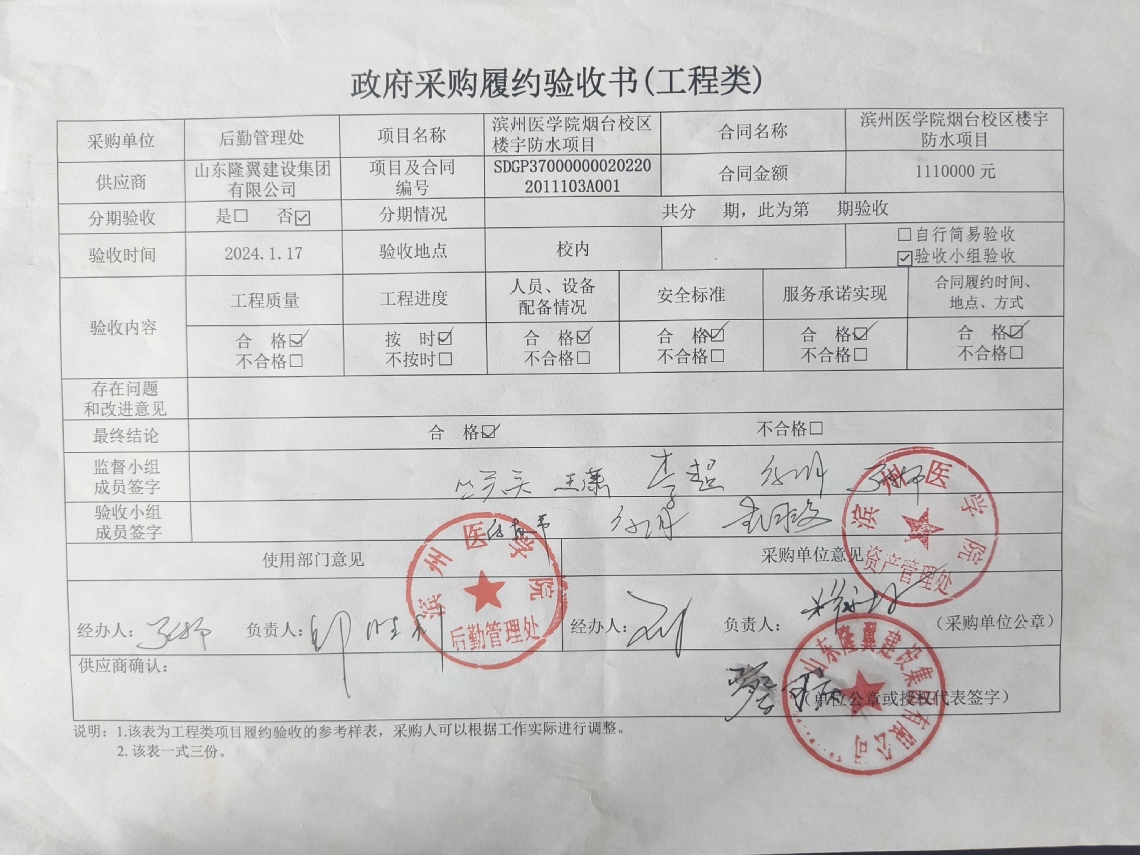 政府采购履约验收书(工程类)
采购单位 后勤管理处 项目名称 滨州医学院烟台校区楼宇防水项目 合同名称 滨州医学院烟台校区楼宇防水项目
供应商 山东隆翼建设集团有限公司 项目及合同编号 SDGP370000000202202011103A001 合同金额 1110000 元
分期验收 是□ 否☑ 分期情况 共分 期，此为第 期验收
验收时间 2024.1.17 验收地点 校内 □自行简易验收
☑验收小组验收
验收内容 工程质量 工程进度 人员、设备配备情况 安全标准 服务承诺实现 合同履约时间、地点、方式
合 格☑ 按 时☑ 合 格☑ 合 格☑ 合 格☑ 合 格☑
不合格□ 不按时□ 不合格□ 不合格□ 不合格□ 不合格□
存在问题
和改进意见
最终结论 合 格☑ 不合格□
监督小组
成员签字 王潇 李超
验收小组
成员签字
使用部门意见 采购单位意见
经办人： 负责人： 经办人： 负责人： （采购单位公章）
供应商确认：
（单位公章或授权代表签字）
说明：1.该表为工程类项目履约验收的参考样表，采购人可以根据工作实际进行调整。
2.该表一式三份。
滨州医学院
后勤管理处
滨州医学院
资产管理处
山东隆翼建设集团有限公司